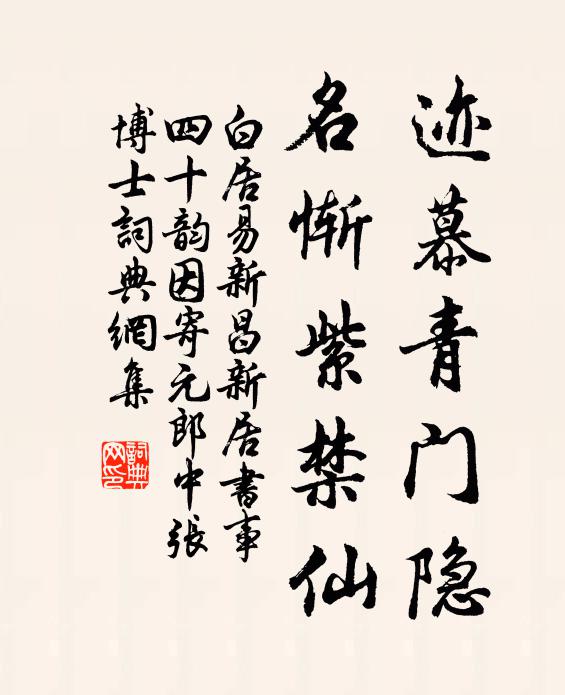 迹慕青门隐
名惭紫禁仙
白居易新昌新居書事
四十韵因寄元郎中張
博士詞典網集
詞典
网印